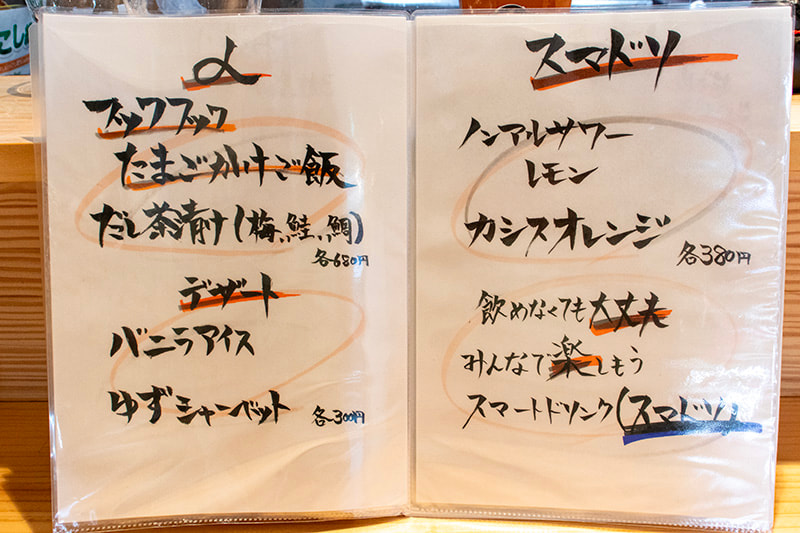 〆
ブックブック
たまごかけご飯
だし茶漬け(梅、鮭、鯛)
各680円
デザート
バニラアイス
ゆずシャーベット
各300円
スマドリ
ノンアルサワー
レモン
カシスオレンジ
各380円
飲めなくても大丈夫
みんなで楽しもう
スマートドリンク(スマドリ)